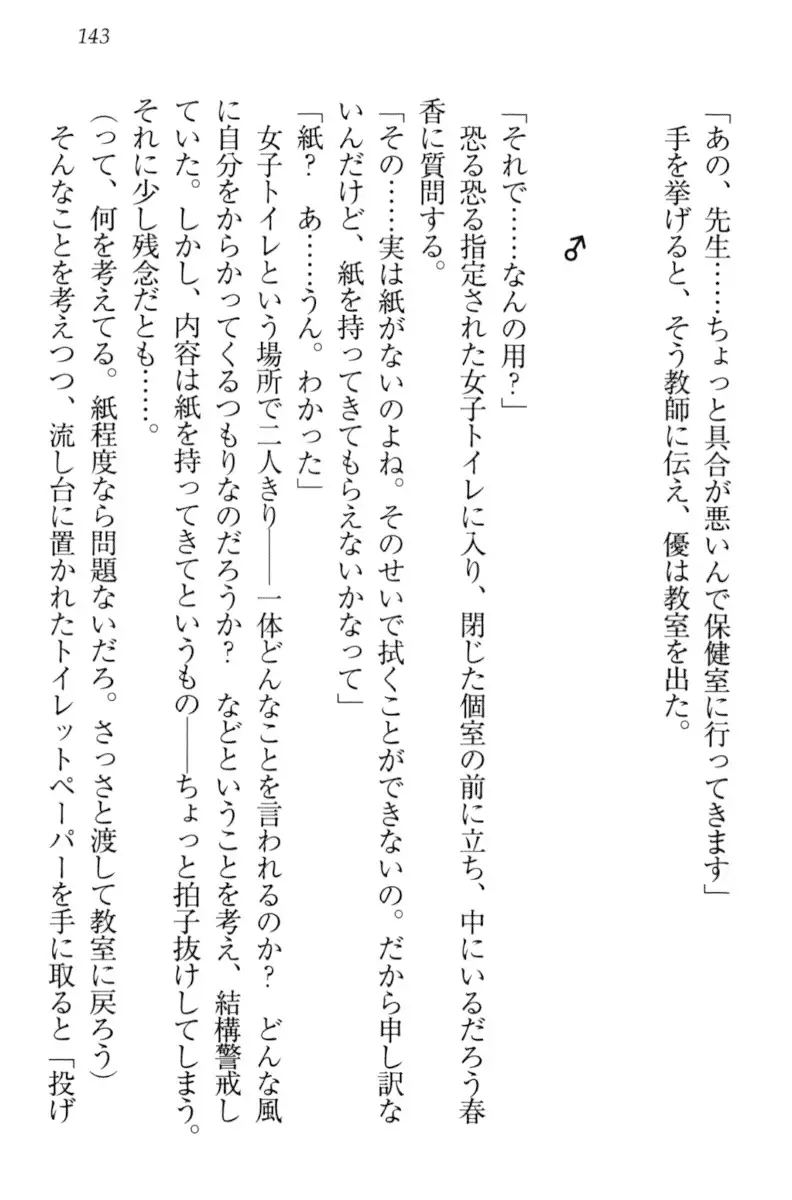 143
「あの、先生……ちょっと具合が悪いんで保健室に行ってきます」
手を挙げると、そう教師に伝え、優は教室を出た。
♂
「それで……なんの用？」
恐る恐る指定された女子トイレに入り、閉じた個室の前に立ち、中にいるだろう春
香に質問する。
「その……実は紙がないのよね。そのせいで拭くことができないの。だから申し訳な
いんだけど、紙を持ってきてもらえないかなって」
「紙？　あ……うん。わかった」
女子トイレという場所で二人きり――一体どんなことを言われるのか？　どんな風
に自分をからかってくるつもりなのだろうか？　などということを考え、結構警戒し
ていた。しかし、内容は紙を持ってきてというもの――ちょっと拍子抜けしてしまう。
それに少し残念だとも……。
（って、何を考えてる。紙程度なら問題ないだろ。さっさと渡して教室に戻ろう）
そんなことを考えつつ、流し台に置かれたトイレットペーパーを手に取ると「投げ